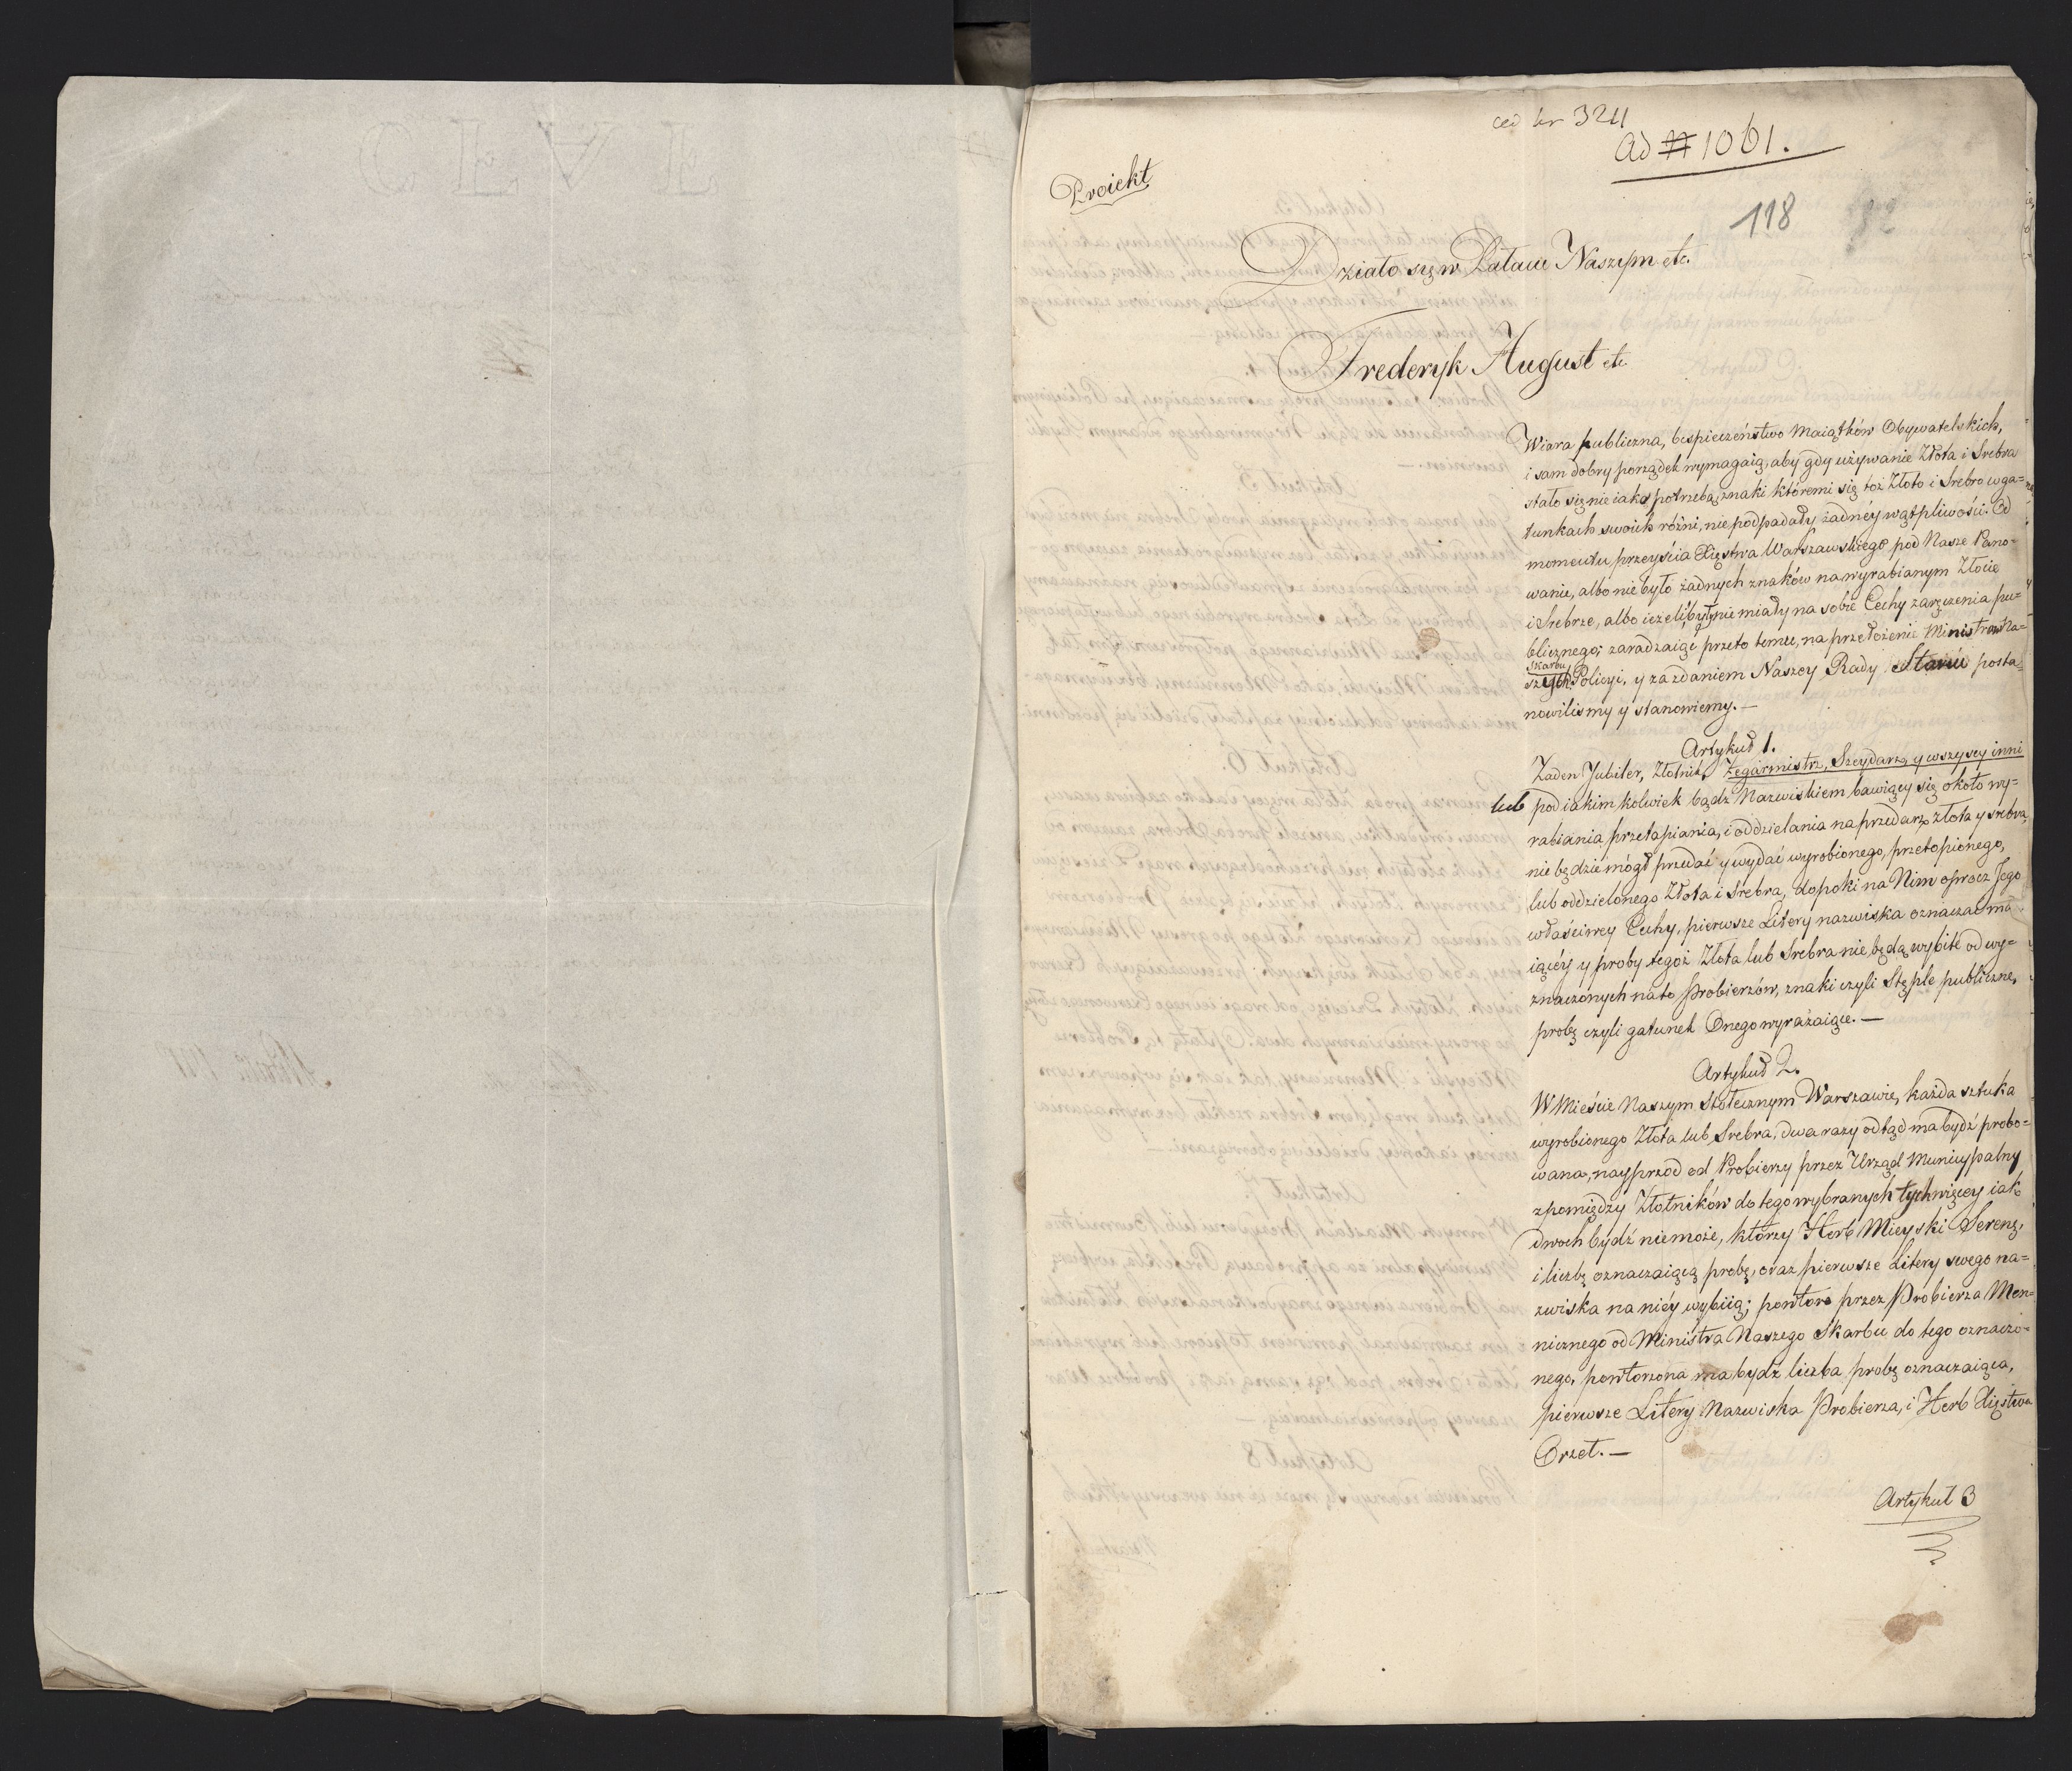 ad nr 3211
Ad # 1061.
Proiekt
118
82
Działo się w Pałacu Naszym etc.
Frederyk August etc.
Wiara publiczna, bespieczeństwo Maiątków Obywatelskich,
i sam dobry porządek wymagaią, aby gdy używanie Złota i Srebra
stało się nie iako potrzebą, znaki któremi się toż Złoto i Srebro w ga=
tunkach swoich różni, nie podpadały żadnéy wątpliwości. Od
momentu przeyścia Xięstwa Warszawskiego pod Nasze Pano=
wanie, albo nie było żadnych znaków na wyrabianym Złocie
i Srebrze, albo ieżeli były nie miały na sobie Cechy zaręczenia pu=
blicznego; zaradzaiąc przeto temu, na przełożenie Ministrów Na=
Skarbu
szych Policyi, y za zdaniem Naszey Rady Stanu posta=
nowilismy y stanowiemy. —
Artykuł 1.
Żaden Jubiler, Złotnik, Zegarmistrz, Szeydarz, y wszyscy inni
lub pod iakimkolwiek bądz Nazwiskiem bawiący się około wy=
rabiania przetapiania, i oddzielania na przedarz złota y srebra,
nie będzie mógł przedać y wydać wyrobionego, przetopionego,
lub oddzielonego Złota i Srebra, dopoki na Nim oprocz Jego
właściwey Cechy, pierwsze Litery nazwiska oznaczać ma=
iącéy y proby tegoż Złota lub Srebra nie będą wybite od wy=
znaczonych na to Probierzów, znaki czyli Stęple publiczne,
probę czyli gatunek Onego wyrażaiące. —
Artykuł 2.
W Mieście Naszym Stołecznym Warszawie, każda sztuka
wyrobionego Złota lub Srebra, dwa razy odtąd ma bydź probo=
wana, nayprzod od Probierzy przez Urząd Municypalny
zpomiędzy Złotników do tego wybranych tych więcey iak
dwoch bydź niemoże, którzy Herb Mieyski Serenę,
i liczbę oznaczaiącą probę, oraz pierwsze Litery swego na=
zwiska na niéy wybiią; powtore przez Probierza Men=
nicznego od Ministra Naszego Skarbu do tego oznaczo=
nego, powtorzona ma bydź liczba probę oznaczaiąca,
pierwsze Litery Nazwiska Probierza, i Herb Xięstwa
Orzeł. —
Artykuł 3